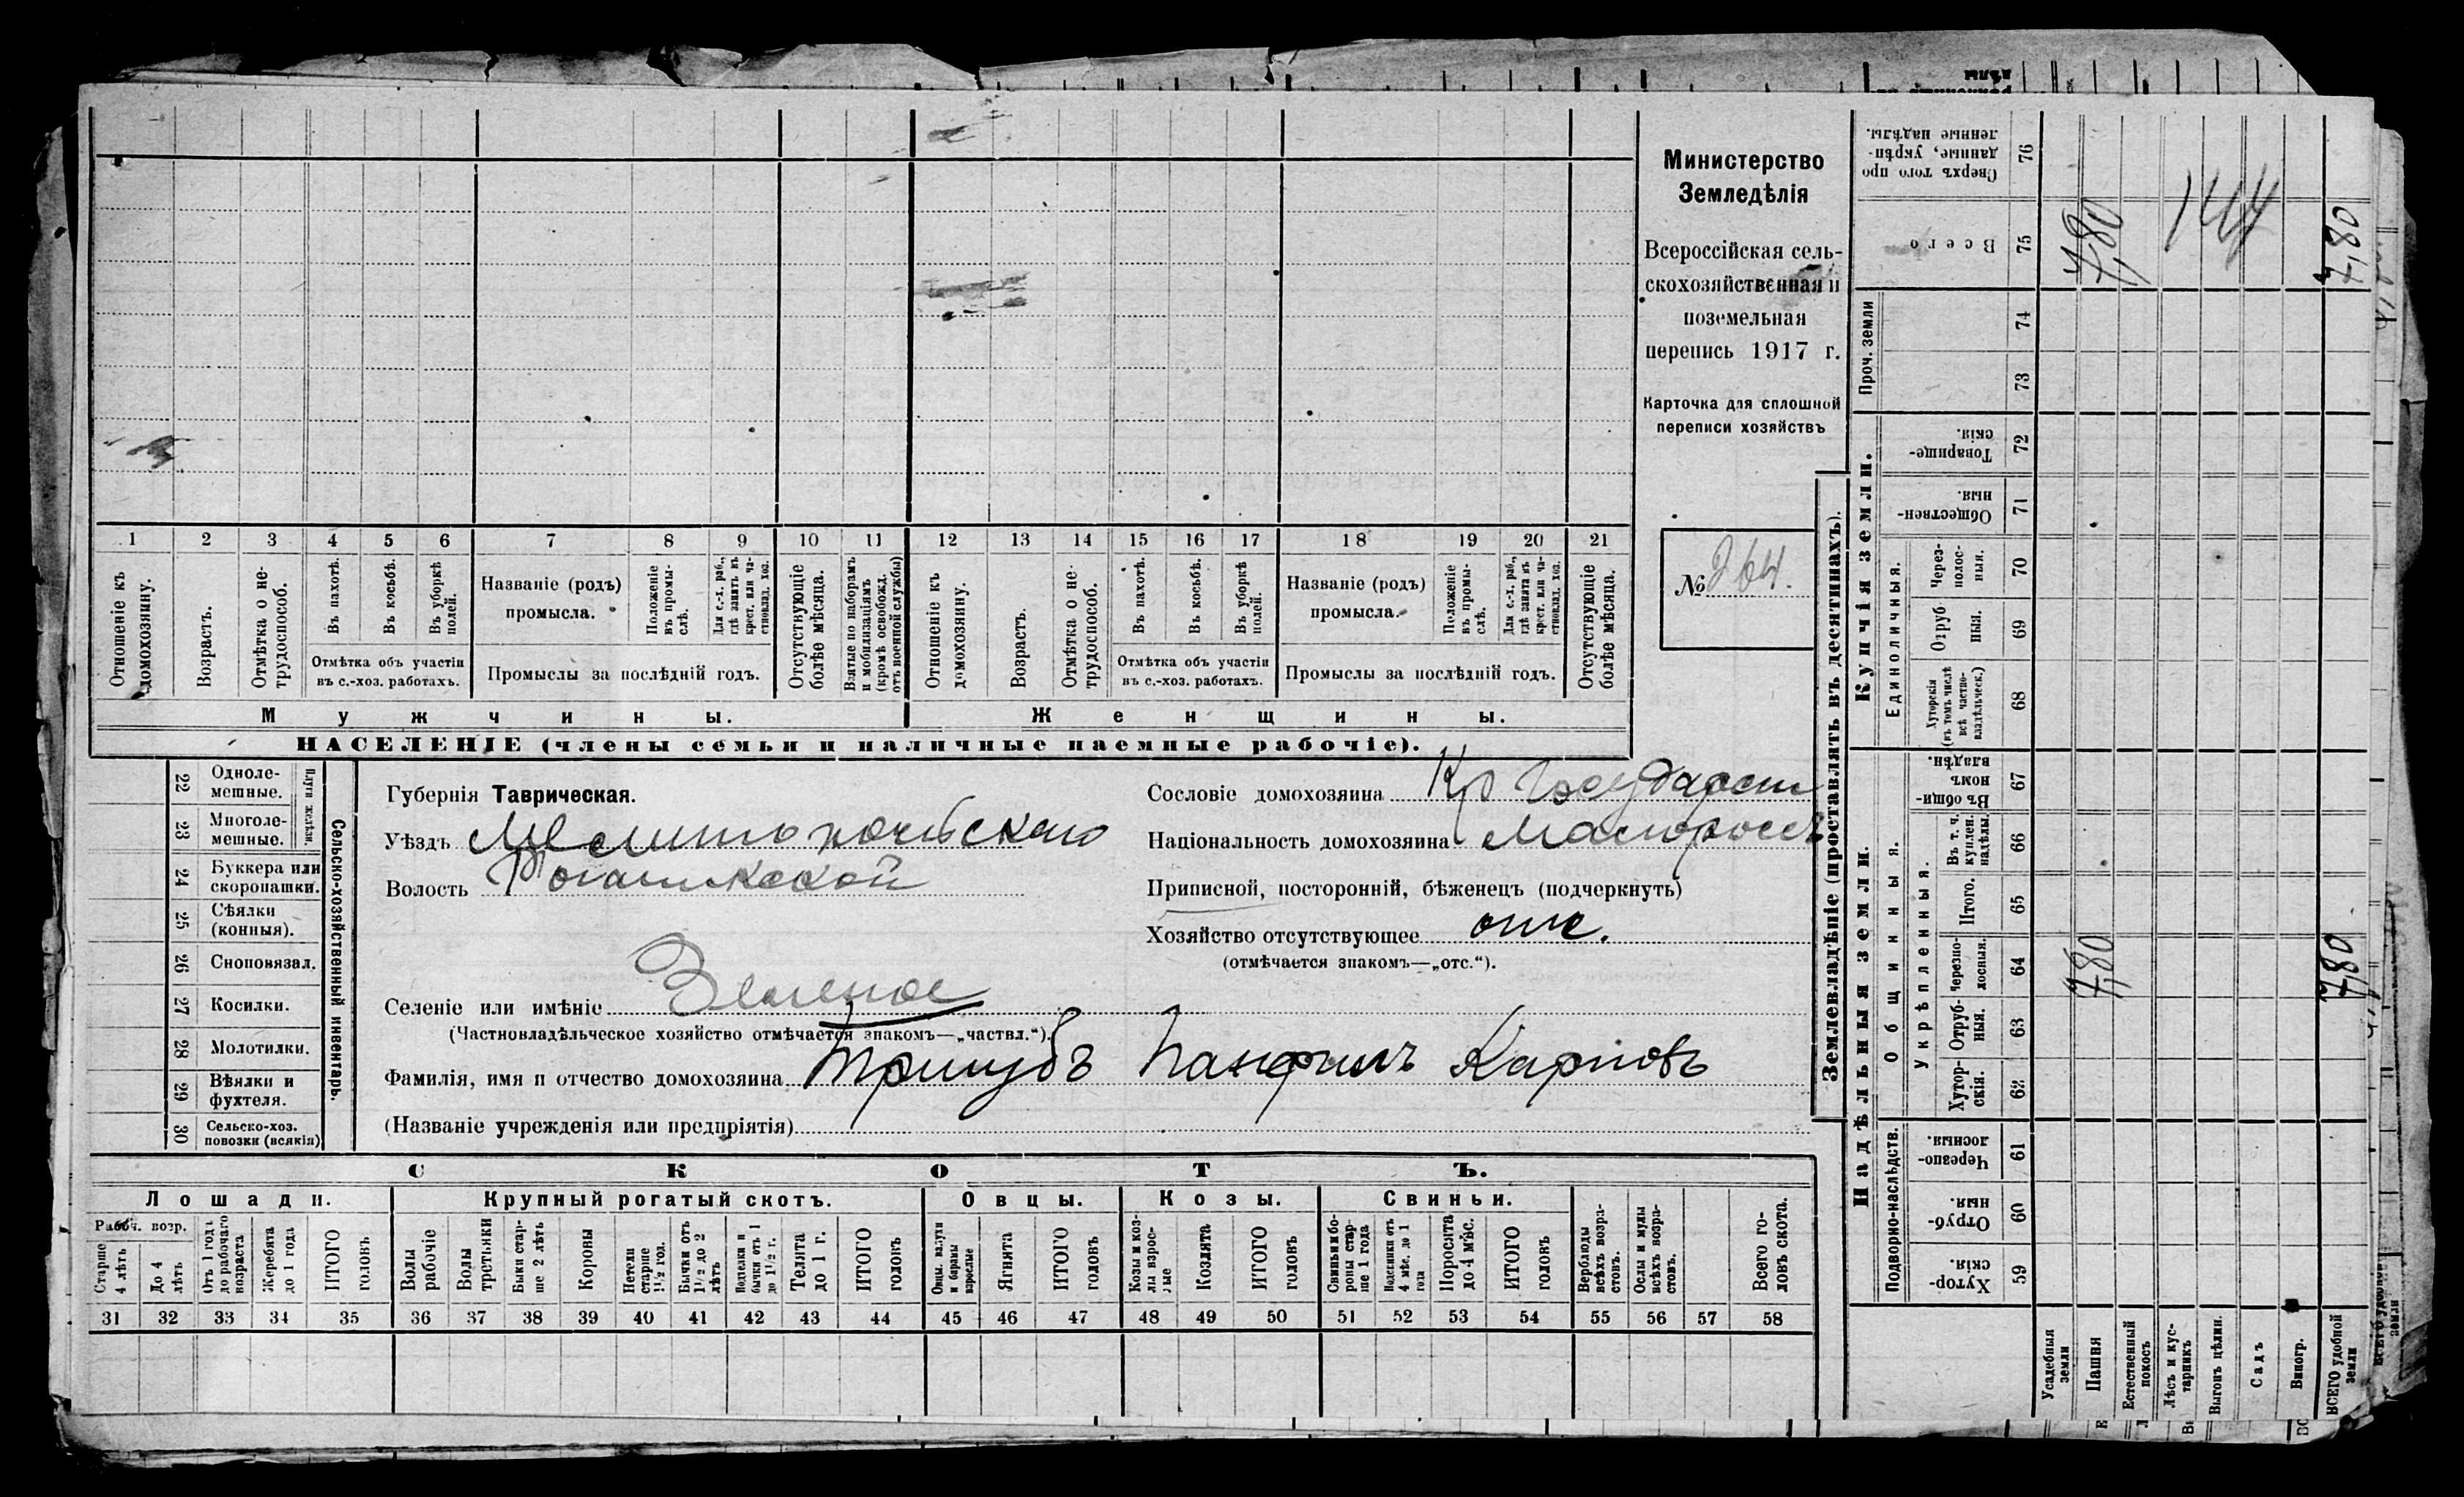 1 2 3 4 5 6 7 8 9 10 11 12 13 14 15 16 17 18 19 20 21
Отношеніе къ домохозяину.
Возрастъ.
Отмѣтка о не-трудоспособ.
Въ пахотѣ.
Въ косьбѣ.
Въ уборкѣ полей.
Отмѣтка объ участіи
въ с.-хоз. работахъ.
Названіе (родъ)
промысла.
Положеніе въ промы-слѣ.
Для с.-х. раб., гдѣ занятъ въ крест. или ча-стновлад. хоз.
Промыслы за послѣдній годъ.
Отсутствующіе болѣе мѣсяца.
Взятые по наборамъ и мобилизаціямъ (кромѣ освобожд. отъ военной службы)
Отношеніе къ домохозяину.
Возрастъ.
Отмѣтка о не-трудоспособ.
Въ пахотѣ.
Въ косьбѣ.
Въ уборкѣ полей.
Отмѣтка объ участіи
въ с.-хоз. работахъ.
Названіе (родъ)
промысла.
Положеніе въ промы-слѣ.
Для с.-х. раб., гдѣ занята въ крест. или ча-стновлад. хоз.
Промыслы за послѣдній годъ.
Отсутствующіе болѣе мѣсяца.
Мужчины.
Женщины.
НАСЕЛЕНІЕ (члены семьи и наличные наемные рабочіе).
Министерство
Земледѣлія
Всероссійская сель-
скохозяйственная и
поземельная
перепись 1917 г.
Карточка для сплошной
переписи хозяйствъ
№ 264.
22 Одноле-мешные.
23 Многоле-мешные.
Плуги желѣзн.
24 Буккера или скоропашки.
25 Сѣялки (конныя).
26 Сноповязал.
27 Косилки.
28 Молотилки.
29 Вѣялки и фухтеля.
30 Сельско-хоз. повозки (всякія)
Сельско-хозяйственный инвентарь.
Губернія Таврическая.
Уѣздъ Мелитопольскаго
Волость Рогачикской
Селеніе или имѣніе Зеленое
(Частновладѣльческое хозяйство отмѣчается знакомъ—„частвл.“).
Фамилія, имя и отчество домохозяина Тришубъ Панфилъ Карповъ
(Названіе учрежденія или предпріятія)
Сословіе домохозяина Кр Государст
Національность домохозяина Малороссъ
Приписной, посторонній, бѣженецъ (подчеркнуть)
Хозяйство отсутствующее отс.
(отмѣчается знакомъ—„отс.“).
СКОТЪ.
Лошади. Крупный рогатый скотъ. Овцы. Козы. Свиньи.
Рабоч. возр.
Старше 4 лѣтъ
До 4 лѣтъ
Отъ 1 года до рабочаго возраста
Жеребята до 1 года
ИТОГО головъ
Волы рабочіе
Волы третьяки
Быки стар-ше 2 лѣтъ
Коровы
Нетели старше 1½ год.
Бычки отъ 1½ до 2 лѣтъ
Подтелки и бычки отъ 1 до 1½ г.
Телята до 1 г.
ИТОГО головъ
Овцы, валухи и бараны взрослые
Ягнята
ИТОГО головъ
Козы и коз-лы взрос-лые
Козлята
ИТОГО головъ
Свиньи и бо-ровы стар-ше 1 года
Подсвинки отъ 4 мѣс. до 1 года
Поросята до 4 мѣс.
ИТОГО головъ
Верблюды всѣхъ возра-стовъ.
Ослы и мулы всѣхъ возра-стовъ.
Всего го-ловъ скота.
31 32 33 34 35 36 37 38 39 40 41 42 43 44 45 46 47 48 49 50 51 52 53 54 55 56 57 58
Землевладѣніе (проставлять въ десятинахъ).
Купчія земли.
Проч. земли
Единоличныя.
Надѣльныя земли.
Общинныя.
Укрѣпленныя.
Подворно-наслѣдств.
76 Сверхъ того про данные, укрѣп-ленные надѣлы.
75 Всего
74
73
72 Товарище-скія.
71 Обществен-ныя.
70 Через-полос-ныя.
69 Отруб-ныя.
68 Хуторскія (въ томъ числѣ всѣ частно-владѣльческ.)
67 Въ общи-номъ владѣн.
66 Въ т. ч. куплен. надѣлы.
65 Итого.
64 Черезпо-лосныя.
63 Отруб-ныя.
62 Хутор-скія.
61 Черезпо-лосныя.
60 Отруб-ныя.
59 Хутор-скія.
7,80
144
7,80
7,80
7,80
Усадебныя земли
Пашня
Естественный покосъ
Лѣсъ и кус-тарникъ
Выгонъ цѣлин.
Садъ
Виногр.
ВСЕГО удобной земли